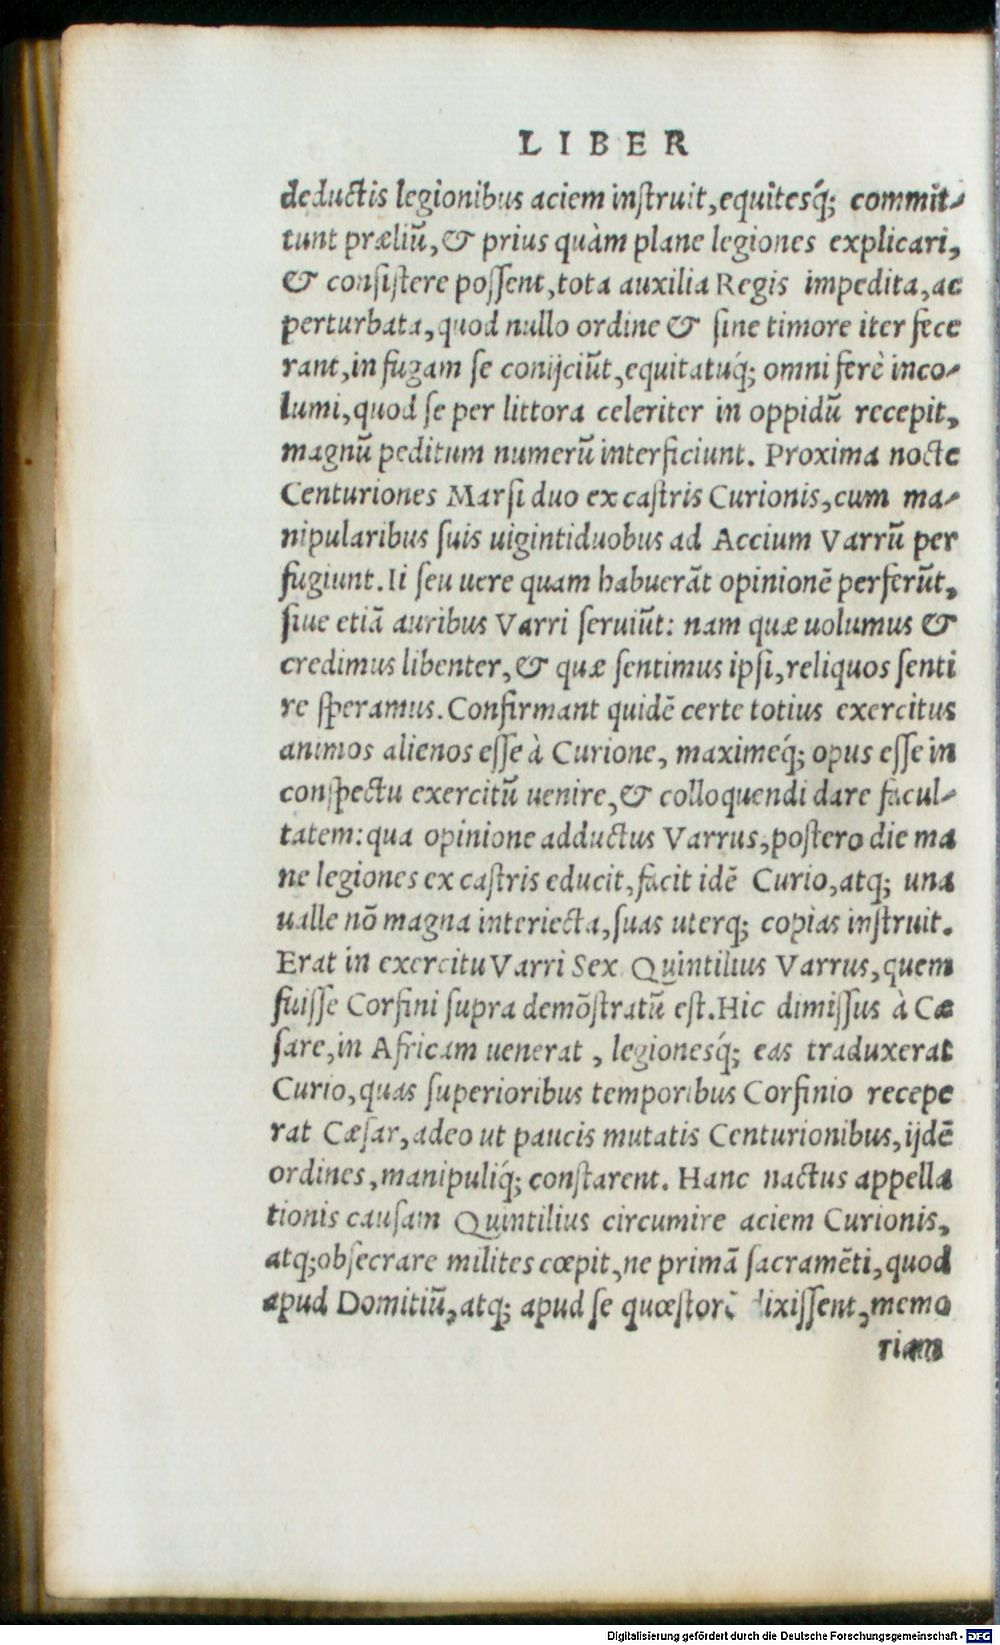 LIBER
deductis legionibus aciem inſtruit, equitesq́; commit-
tunt præliũ, & prius quàm plane legiones explicari,
& conſiſtere poſſent, tota auxilia Regis impedita, ac
perturbata, quod nullo ordine & ſine timore iter fece
rant, in fugam ſe conijciũt, equitatuq́; omni ferè inco-
lumi, quod ſe per littora celeriter in oppidũ recepit,
magnũ peditum numerũ interficiunt. Proxima nocte
Centuriones Marſi duo ex caſtris Curionis, cum ma-
nipularibus ſuis uigintiduobus ad Accium Varrũ per
fugiunt. Ii ſeu uere quam habuerãt opinionẽ perferũt,
ſiue etiã auribus Varri ſeruiũt: nam quæ uolumus &
credimus libenter, & quæ ſentimus ipſi, reliquos ſenti
re ſperamus. Confirmant quidẽ certe totius exercitus
animos alienos eſſe à Curione, maximeq́; opus eſſe in
conſpectu exercitũ uenire, & colloquendi dare facul-
tatem: qua opinione adductus Varrus, poſtero die ma
ne legiones ex caſtris educit, facit idẽ Curio, atq; una
ualle nõ magna interiecta, ſuas uterq; copias inſtruit.
Erat in exercitu Varri Sex Quintilius Varrus, quem
fuiſſe Corfini ſupra demõſtratũ eſt. Hic dimiſſus à Cæ
ſare, in Africam uenerat, legionesq́; eas traduxerat
Curio, quas ſuperioribus temporibus Corfinio recepe
rat Cæſar, adeo ut paucis mutatis Centurionibus, ijdẽ
ordines, manipuliq́; conſtarent. Hanc nactus appella
tionis cauſam Quintilius circumire aciem Curionis,
atq; obſecrare milites cœpit, ne primã ſacramẽti, quod
apud Domitiũ, atq; apud ſe quæſtorẽ dixiſſent, memo
riam
Digitalisierung gefördert durch die Deutsche Forschungsgemeinschaft - DFG